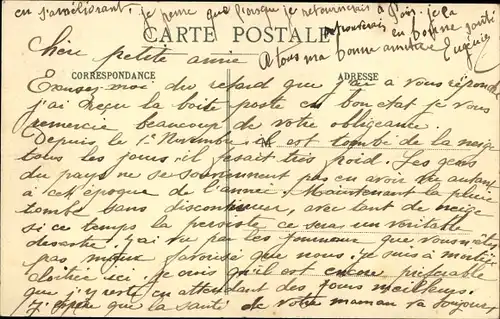 CARTE POSTALE
CORRESPONDANCE
ADRESSE
Chère petite amie
Excusez-moi du retard que j'ai à vous répondre
j'ai reçu la boite poste en bon état je vous
remercie beaucoup de votre obligeance.
Depuis le 1er Novembre il est tombé de la neige
tous les jours, il fesait très froid. Les gens
du pays ne se souviennent pas en avoir vu autant
à cet époque de l'année. Maintenant la pluie
tombe sans discontinuer, avec tant de neige
si ce temps la persiste ce sera un veritable
desastre. J'ai vu par les journeaux que vous n'êtes
pas mieux favorisé que nous. Je suis à moitié
cloitrée ici. Je crois qu'il est encore préférable
que j'y reste en attendant des jours meilleurs.
J'espère que la santé de votre maman va toujours
en s'améliorant. je pense que lorsque je retournerais à
retrouverais en bonne santé
A tous ma bonne amitié
Eugénie